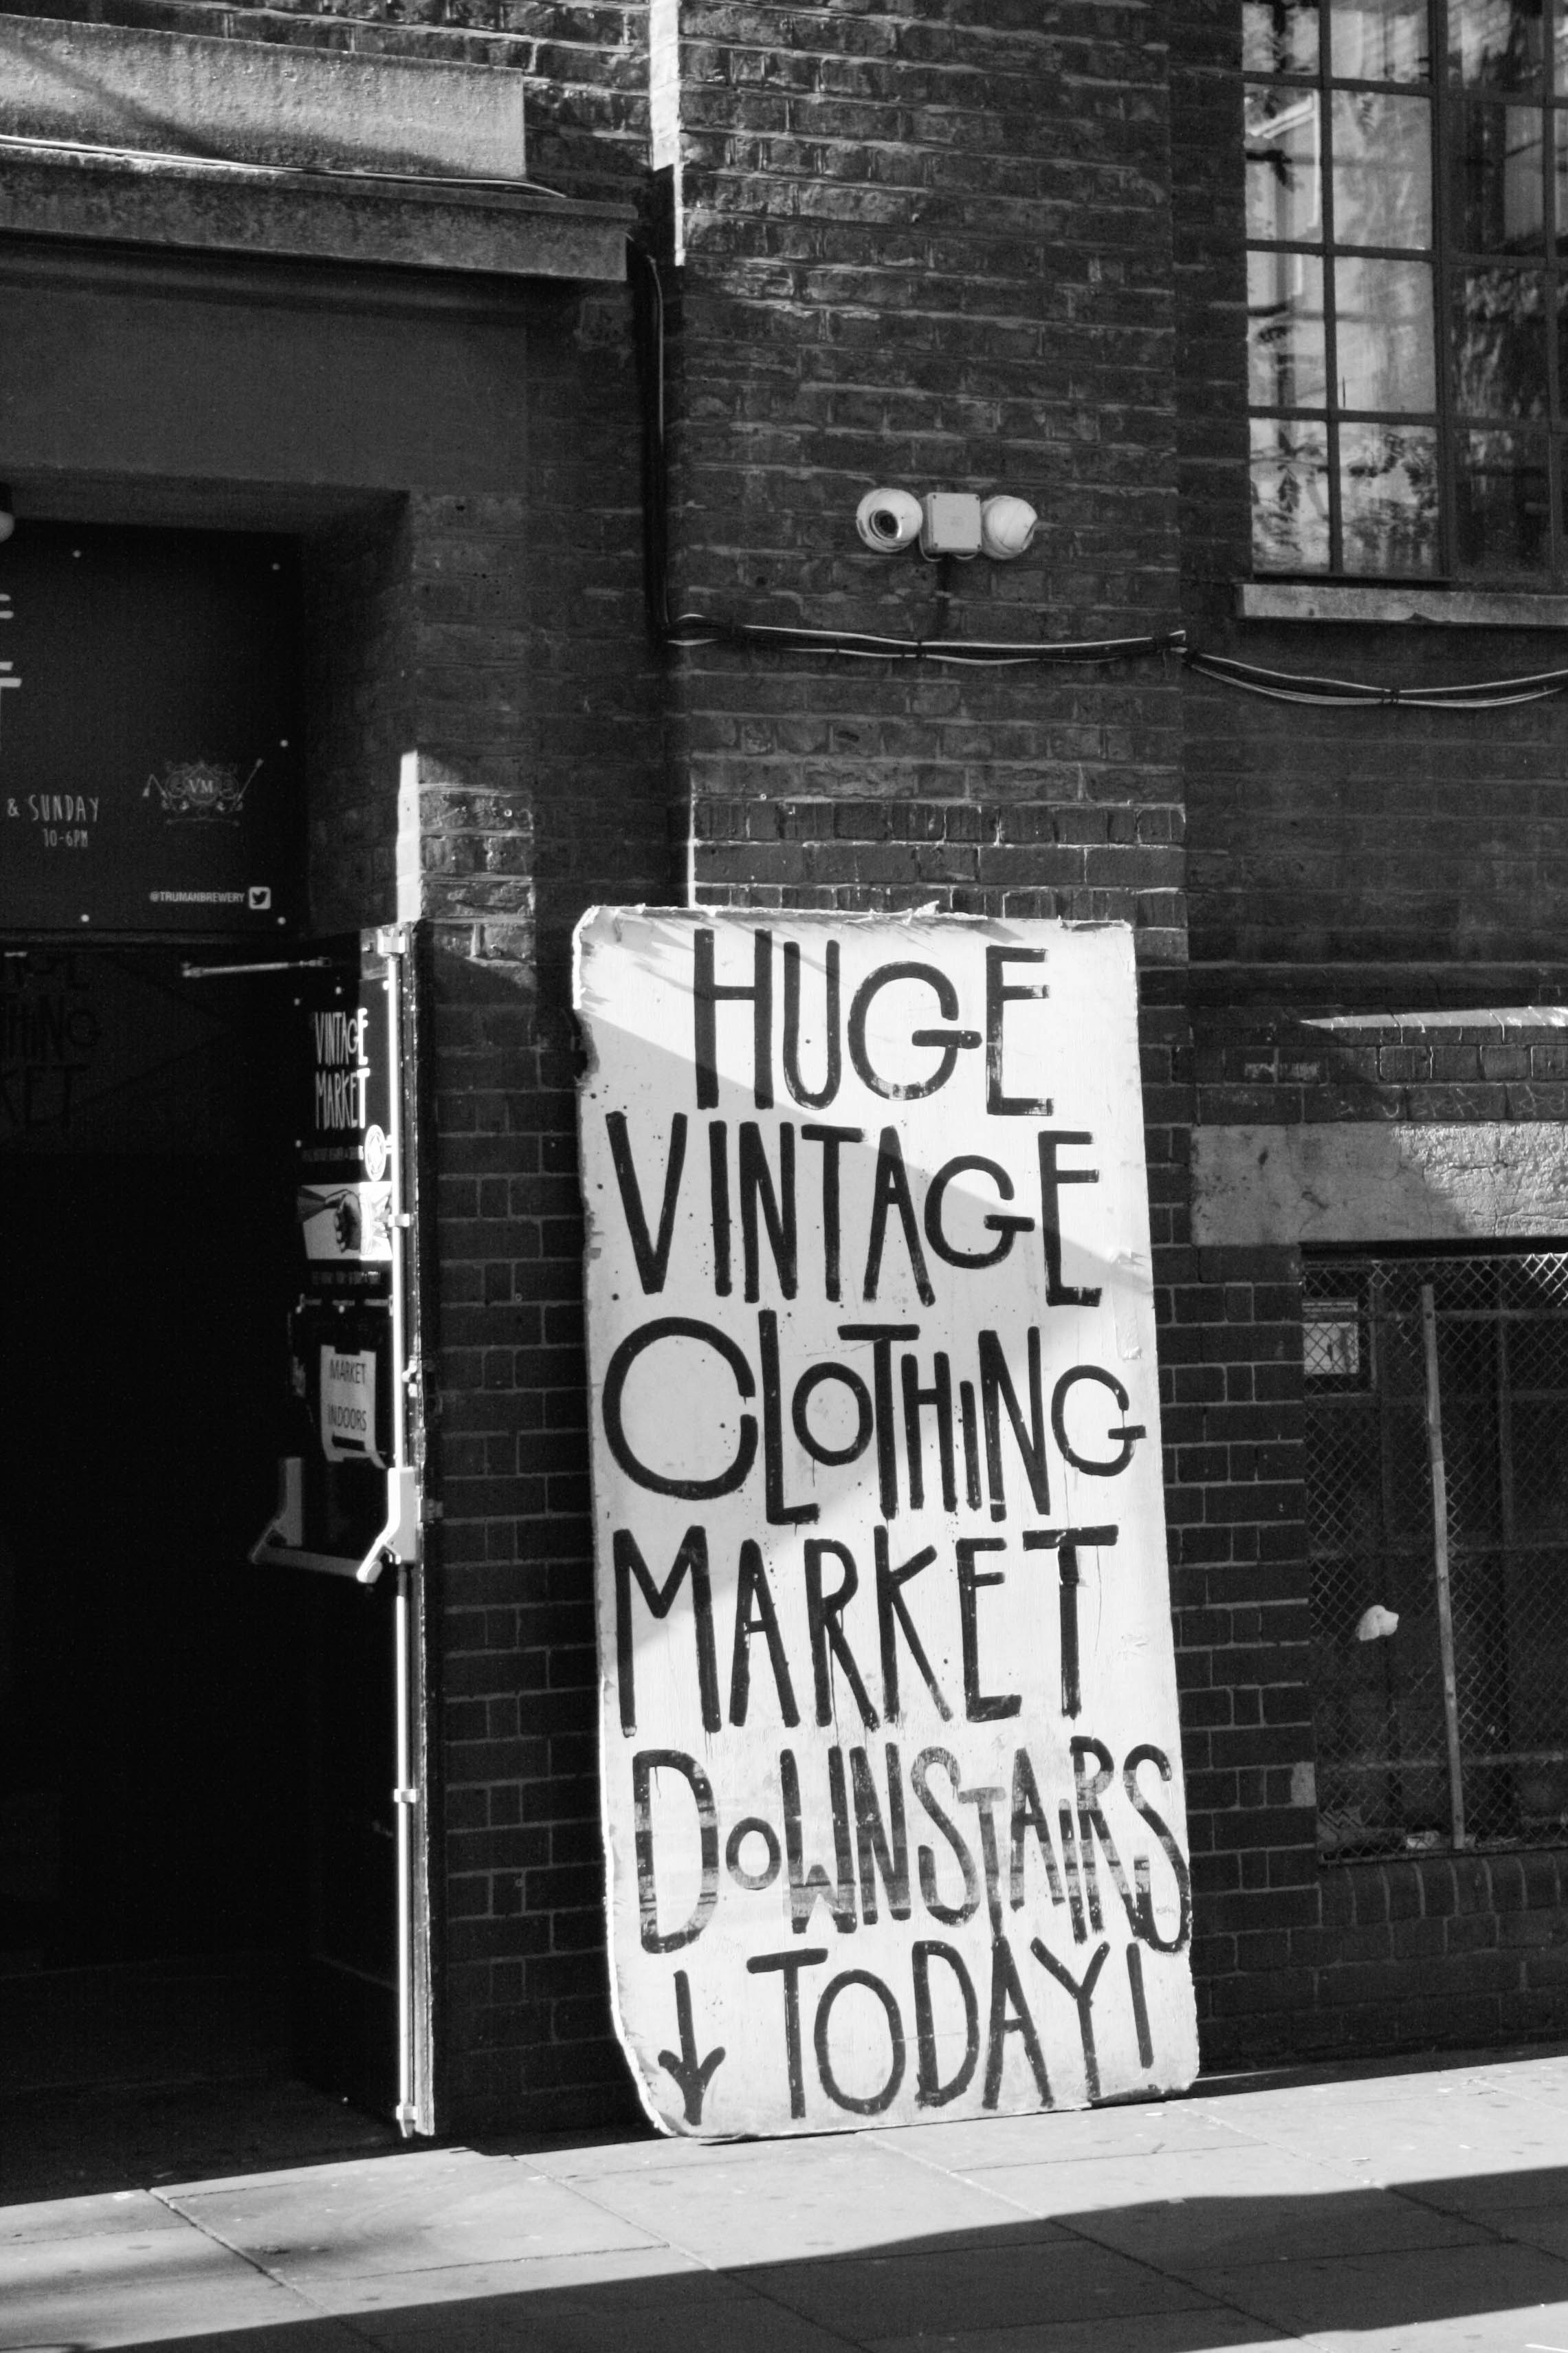 & SUNDAY
10-6PM
VM
@TRUMANBREWERY
VINTAGE
MARKET
MARKET
INDOORS
HUGE
VINTAGE
CLOTHING
MARKET
DOWNSTAIRS
↓ TODAY!